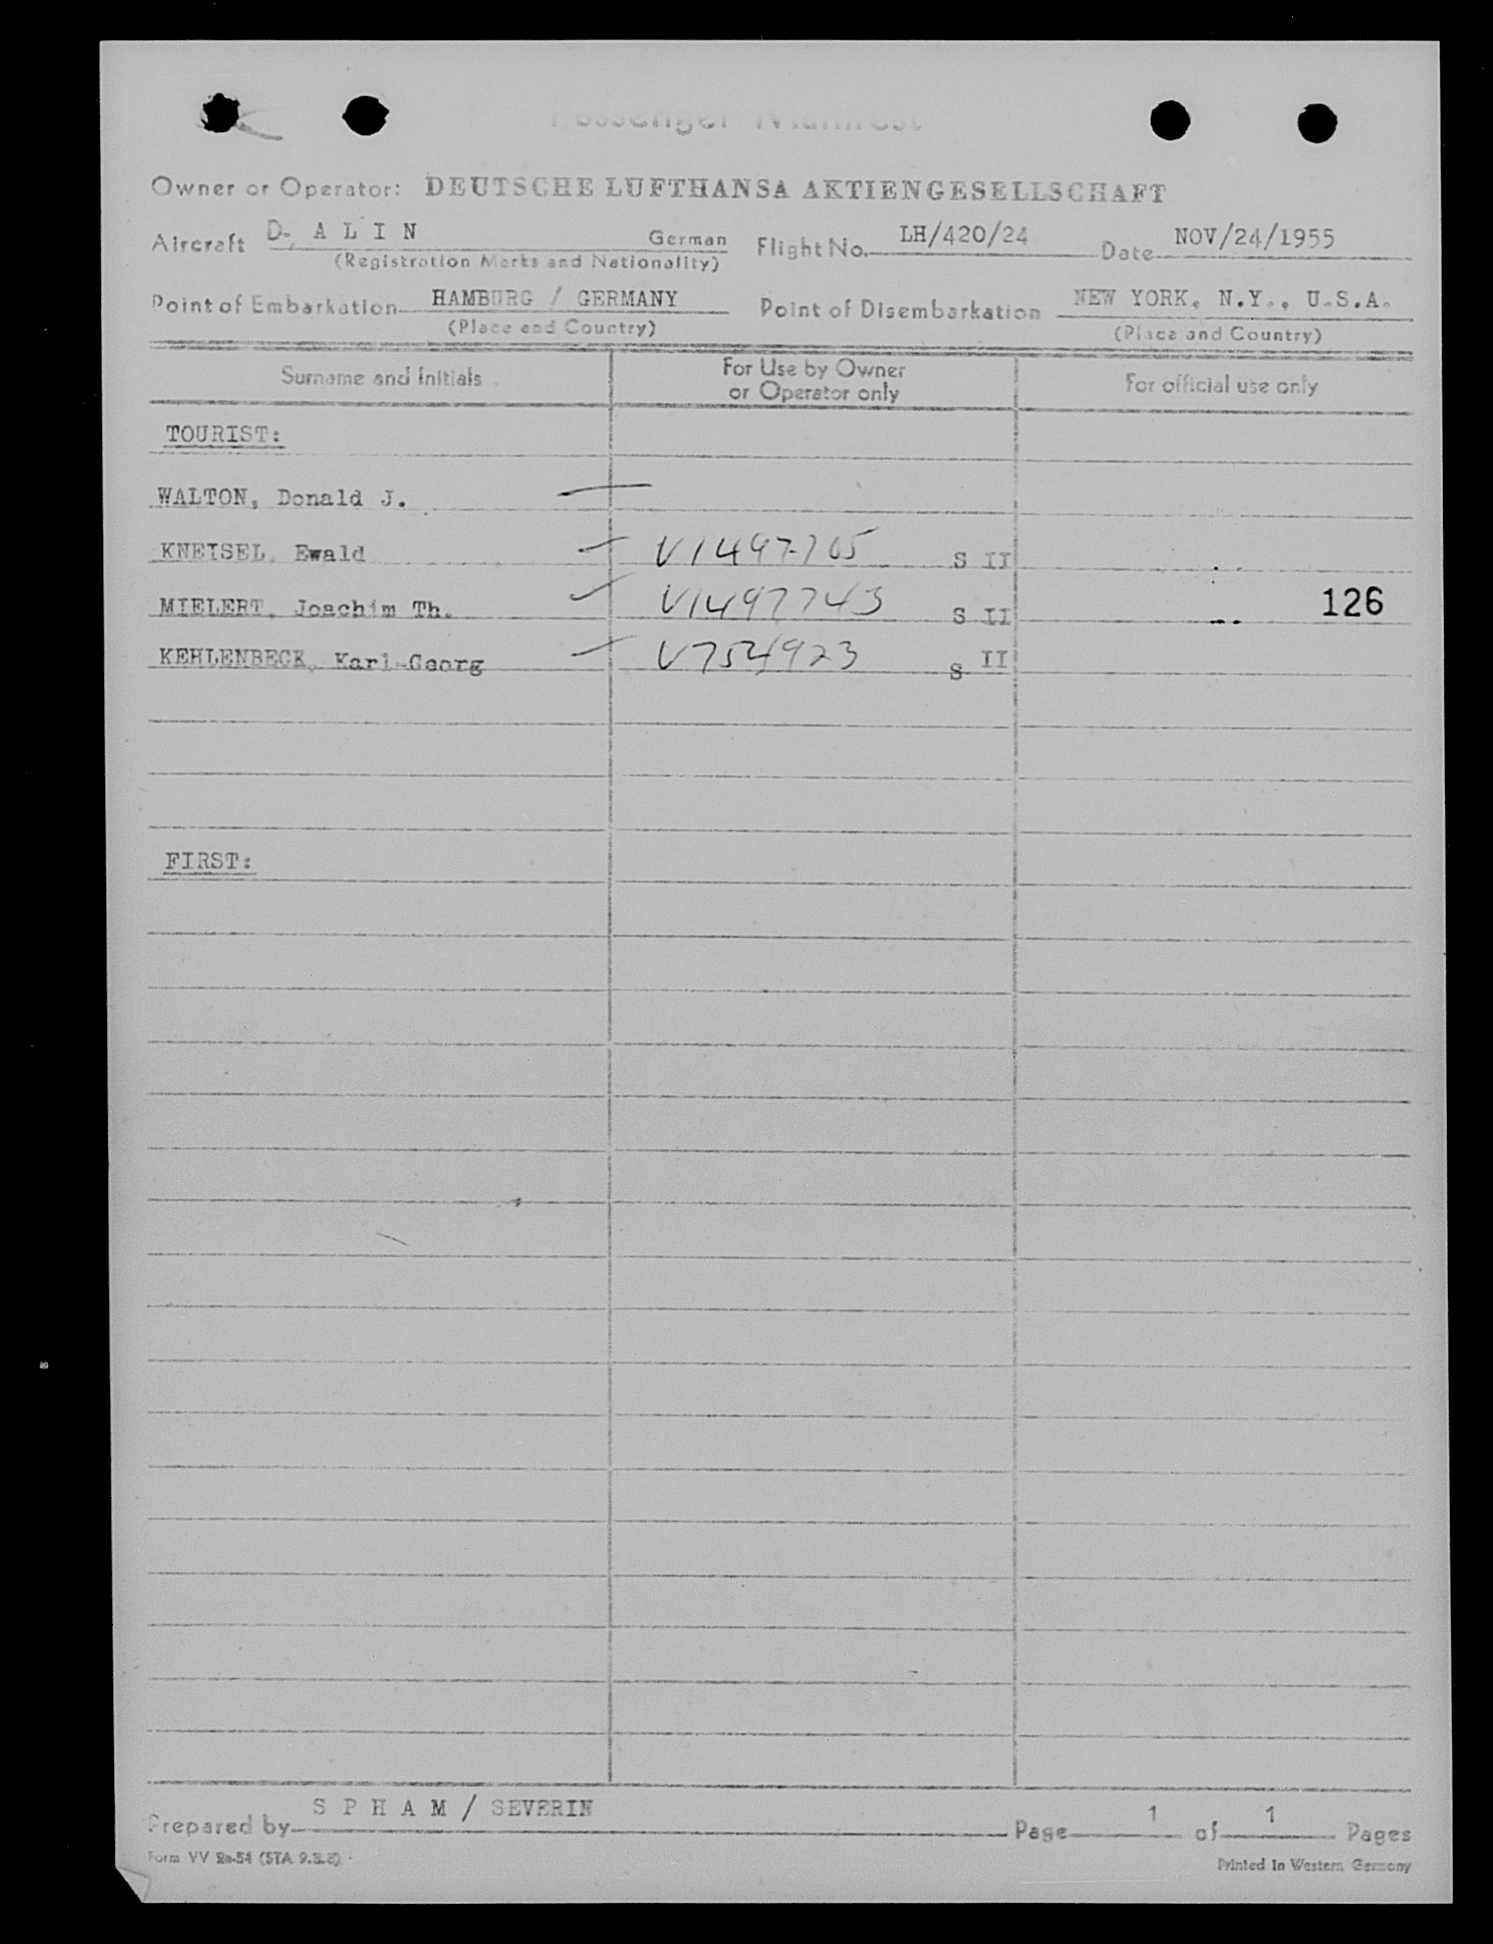 Passenger Manifest
Owner or Operator: DEUTSCHE LUFTHANSA AKTIENGESELLSCHAFT
Aircraft D, A L I N German Flight No. LH/420/24 Date NOV/24/1955
(Registration Marks and Nationality)
Point of Embarkation HAMBURG / GERMANY Point of Disembarkation NEW YORK, N.Y., U.S.A.
(Place and Country) (Place and Country)
Surname and Initials For Use by Owner or Operator only For official use only
TOURIST:
WALTON, Donald J.
KNEISEL, Ewald V1497765 S II
MIELERT, Joachim Th. V1497743 S II 126
KEHLENBECK, Karl-Georg V754923 S II
FIRST:
Prepared by S P H A M / SEVERIN Page 1 of 1 Pages
Form VV 2a-54 Printed in Western Germany